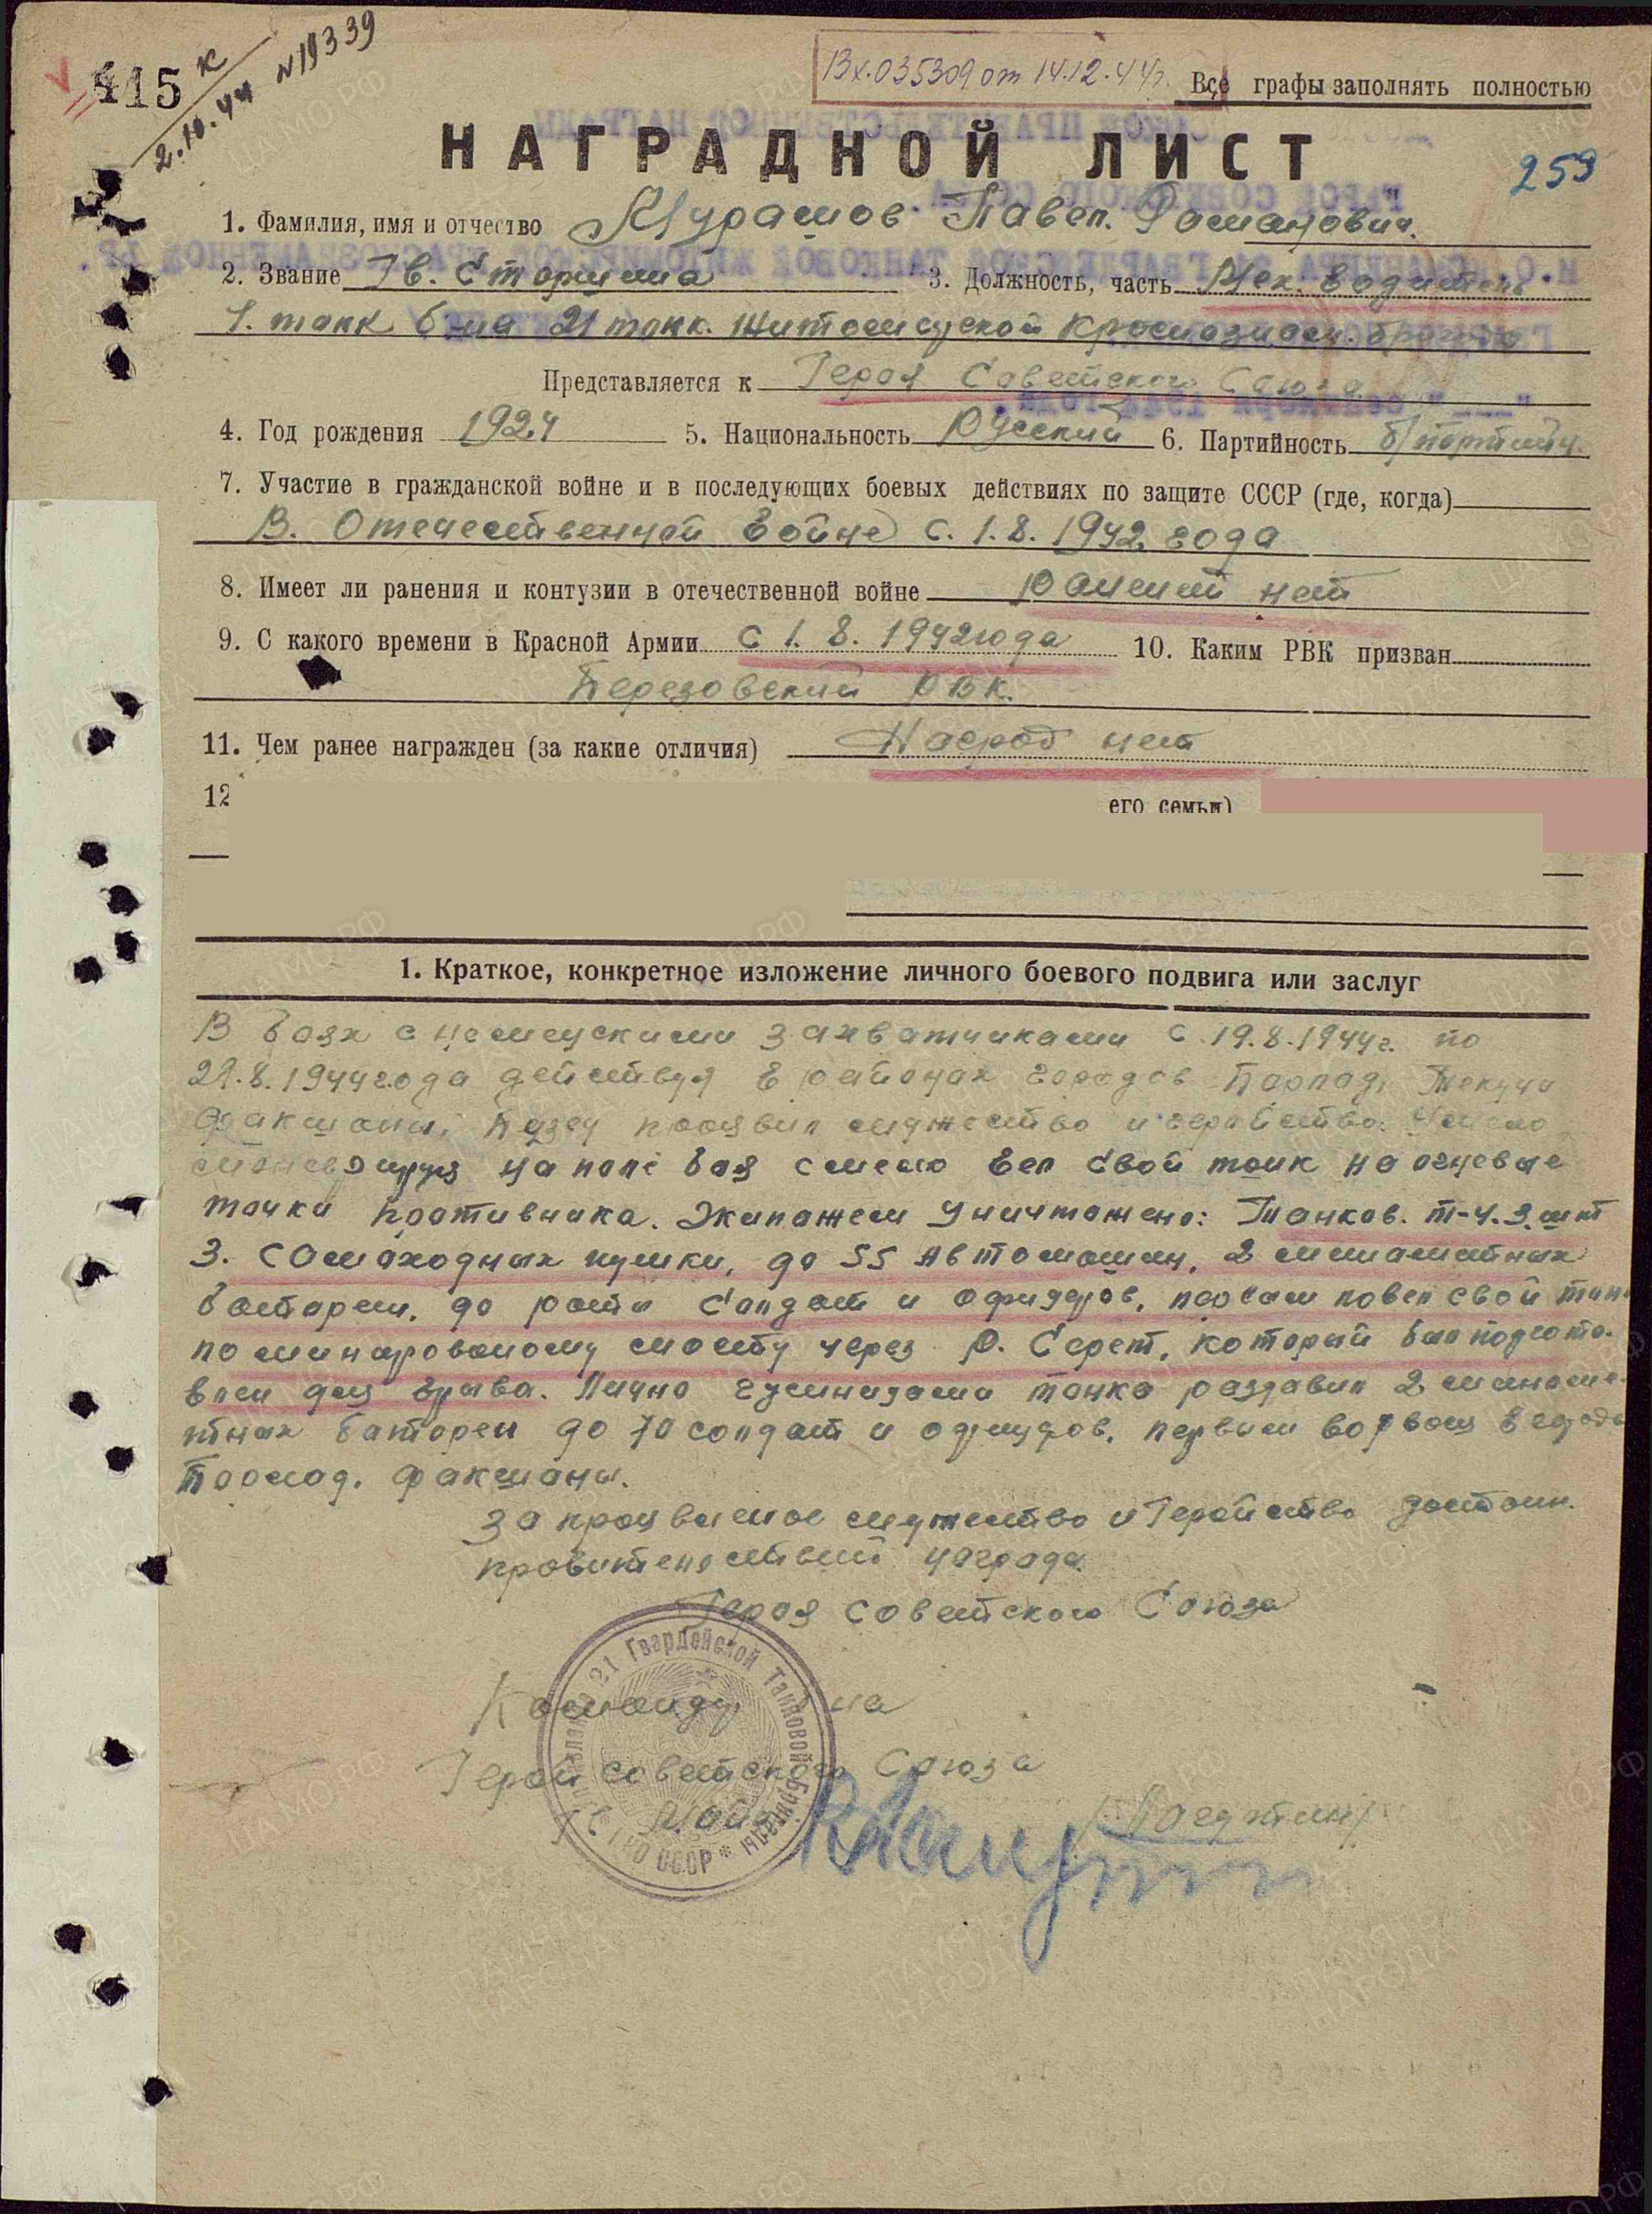 415 к
2.10.44 N19339
Вх.035309 от 14.12.44г.
Все графы заполнять полностью
НАГРАДНОЙ ЛИСТ
259
1. Фамилия, имя и отчество Мурашов Павел. Романович.
2. Звание Гв. Старшина 3. Должность, часть Мех. водитель
1. танк б-на 21 танк. Житомирской Краснознам. бригады
Представляется к Героя Советского Союза
4. Год рождения 1924 5. Национальность Русский 6. Партийность б/партийн.
7. Участие в гражданской войне и в последующих боевых действиях по защите СССР (где, когда)
В. Отечественной войне с. 1.8. 1942 года
8. Имеет ли ранения и контузии в отечественной войне Ранений нет
9. С какого времени в Красной Армии с 1. 8. 1942 года 10. Каким РВК призван
Березовский РВК.
11. Чем ранее награжден (за какие отличия) Наград нет
12 его семьи)
1. Краткое, конкретное изложение личного боевого подвига или заслуг
В боях с немецкими захватчиками с 19.8.1944г. по
29.8.1944 года действуя в районах городов Бырлад, Текучи
Факшаны, Бузеу проявил мужество и геройство. Умело
маневрируя на поле боя смело вел свой танк на огневые
точки противника. Экипажем уничтожено: Танков. т-4. 3. шт
3. самоходных пушки, до 55 автомашин, 2 минаметных
батареи. до роты солдат и офицеров, первым повел свой танк
по минированому мосту через р. Серет, который был подгото-
влен для взрыва. Лично гусиницами танка раздавил 2 минаме-
тных батареи до 70 солдат и офицеров, первым ворвался в города
Бырлад. Факшаны.
За проявленое мужество и Геройство достоин.
правительственой награды
Героя Советского Союза
Командир б-на
Герой Советского Союза
Гв Майор
21 Гвардейской Танковой Бригады * СССР